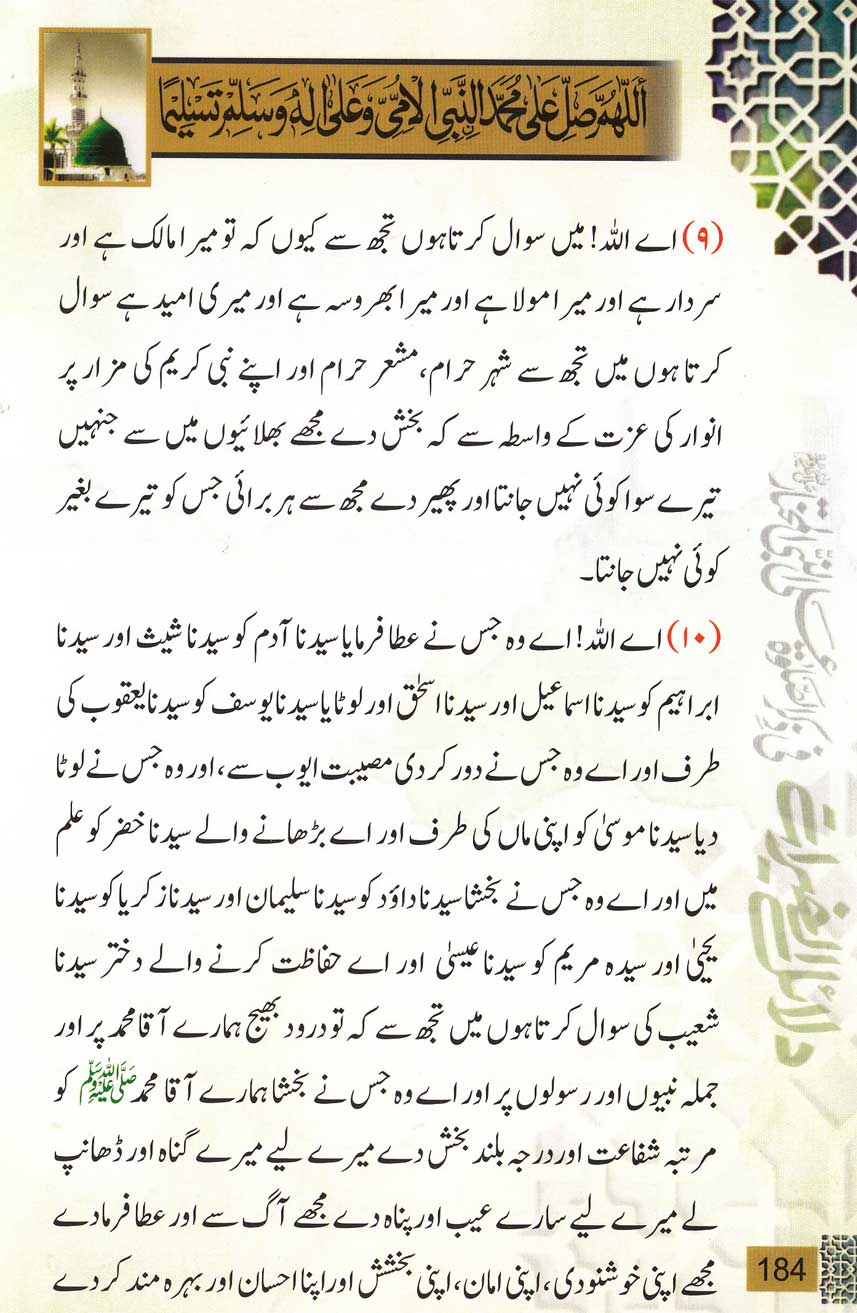 أللّٰهُمَّ صَلِّ عَلٰى مُحَمَّدِ النَّبِيِّ الْاُمِّيِّ وَعَلٰى اٰلِهٖ وَسَلِّمْ تَسْلِيْمًا
(۹) اے اللہ! میں سوال کرتا ہوں تجھ سے کیوں کہ تو میرا مالک ہے اور
سردار ہے اور میرا مولا ہے اور میرا بھروسہ ہے اور میری امید ہے سوال
کرتا ہوں میں تجھ سے شہر حرام، مشعر حرام اور اپنے نبی کریم کی مزار پر
انوار کی عزت کے واسطہ سے کہ بخش دے مجھے بھلائیوں میں سے جنہیں
تیرے سوا کوئی نہیں جانتا اور پھیر دے مجھ سے ہر برائی جس کو تیرے بغیر
کوئی نہیں جانتا۔
(۱۰) اے اللہ! اے وہ جس نے عطا فرمایا سیدنا آدم کو سیدنا شیث اور سیدنا
ابراہیم کو سیدنا اسماعیل اور سیدنا اسحٰق اور لوٹایا سیدنا یوسف کو سیدنا یعقوب کی
طرف اور اے وہ جس نے دور کر دی مصیبت ایوب سے، اور وہ جس نے لوٹا
دیا سیدنا موسیٰ کو اپنی ماں کی طرف اور اے بڑھانے والے سیدنا خضر کو علم
میں اور اے وہ جس نے بخشا سیدنا داؤد کو سیدنا سلیمان اور سیدنا زکریا کو سیدنا
یحییٰ اور سیدہ مریم کو سیدنا عیسیٰ اور اے حفاظت کرنے والے دختر سیدنا
شعیب کی سوال کرتا ہوں میں تجھ سے کہ تو درود بھیج ہمارے آقا محمد پر اور
جملہ نبیوں اور رسولوں پر اور اے وہ جس نے بخشا ہمارے آقا محمد ﷺ کو
مرتبہ شفاعت اور درجہ بلند بخش دے میرے لیے میرے گناہ اور ڈھانپ
لے میرے لیے سارے عیب اور پناہ دے مجھے آگ سے اور عطا فرما دے
مجھے اپنی خوشنودی، اپنی امان، اپنی بخشش اور اپنا احسان اور بہرہ مند کر دے
184
دلائل الخیرات